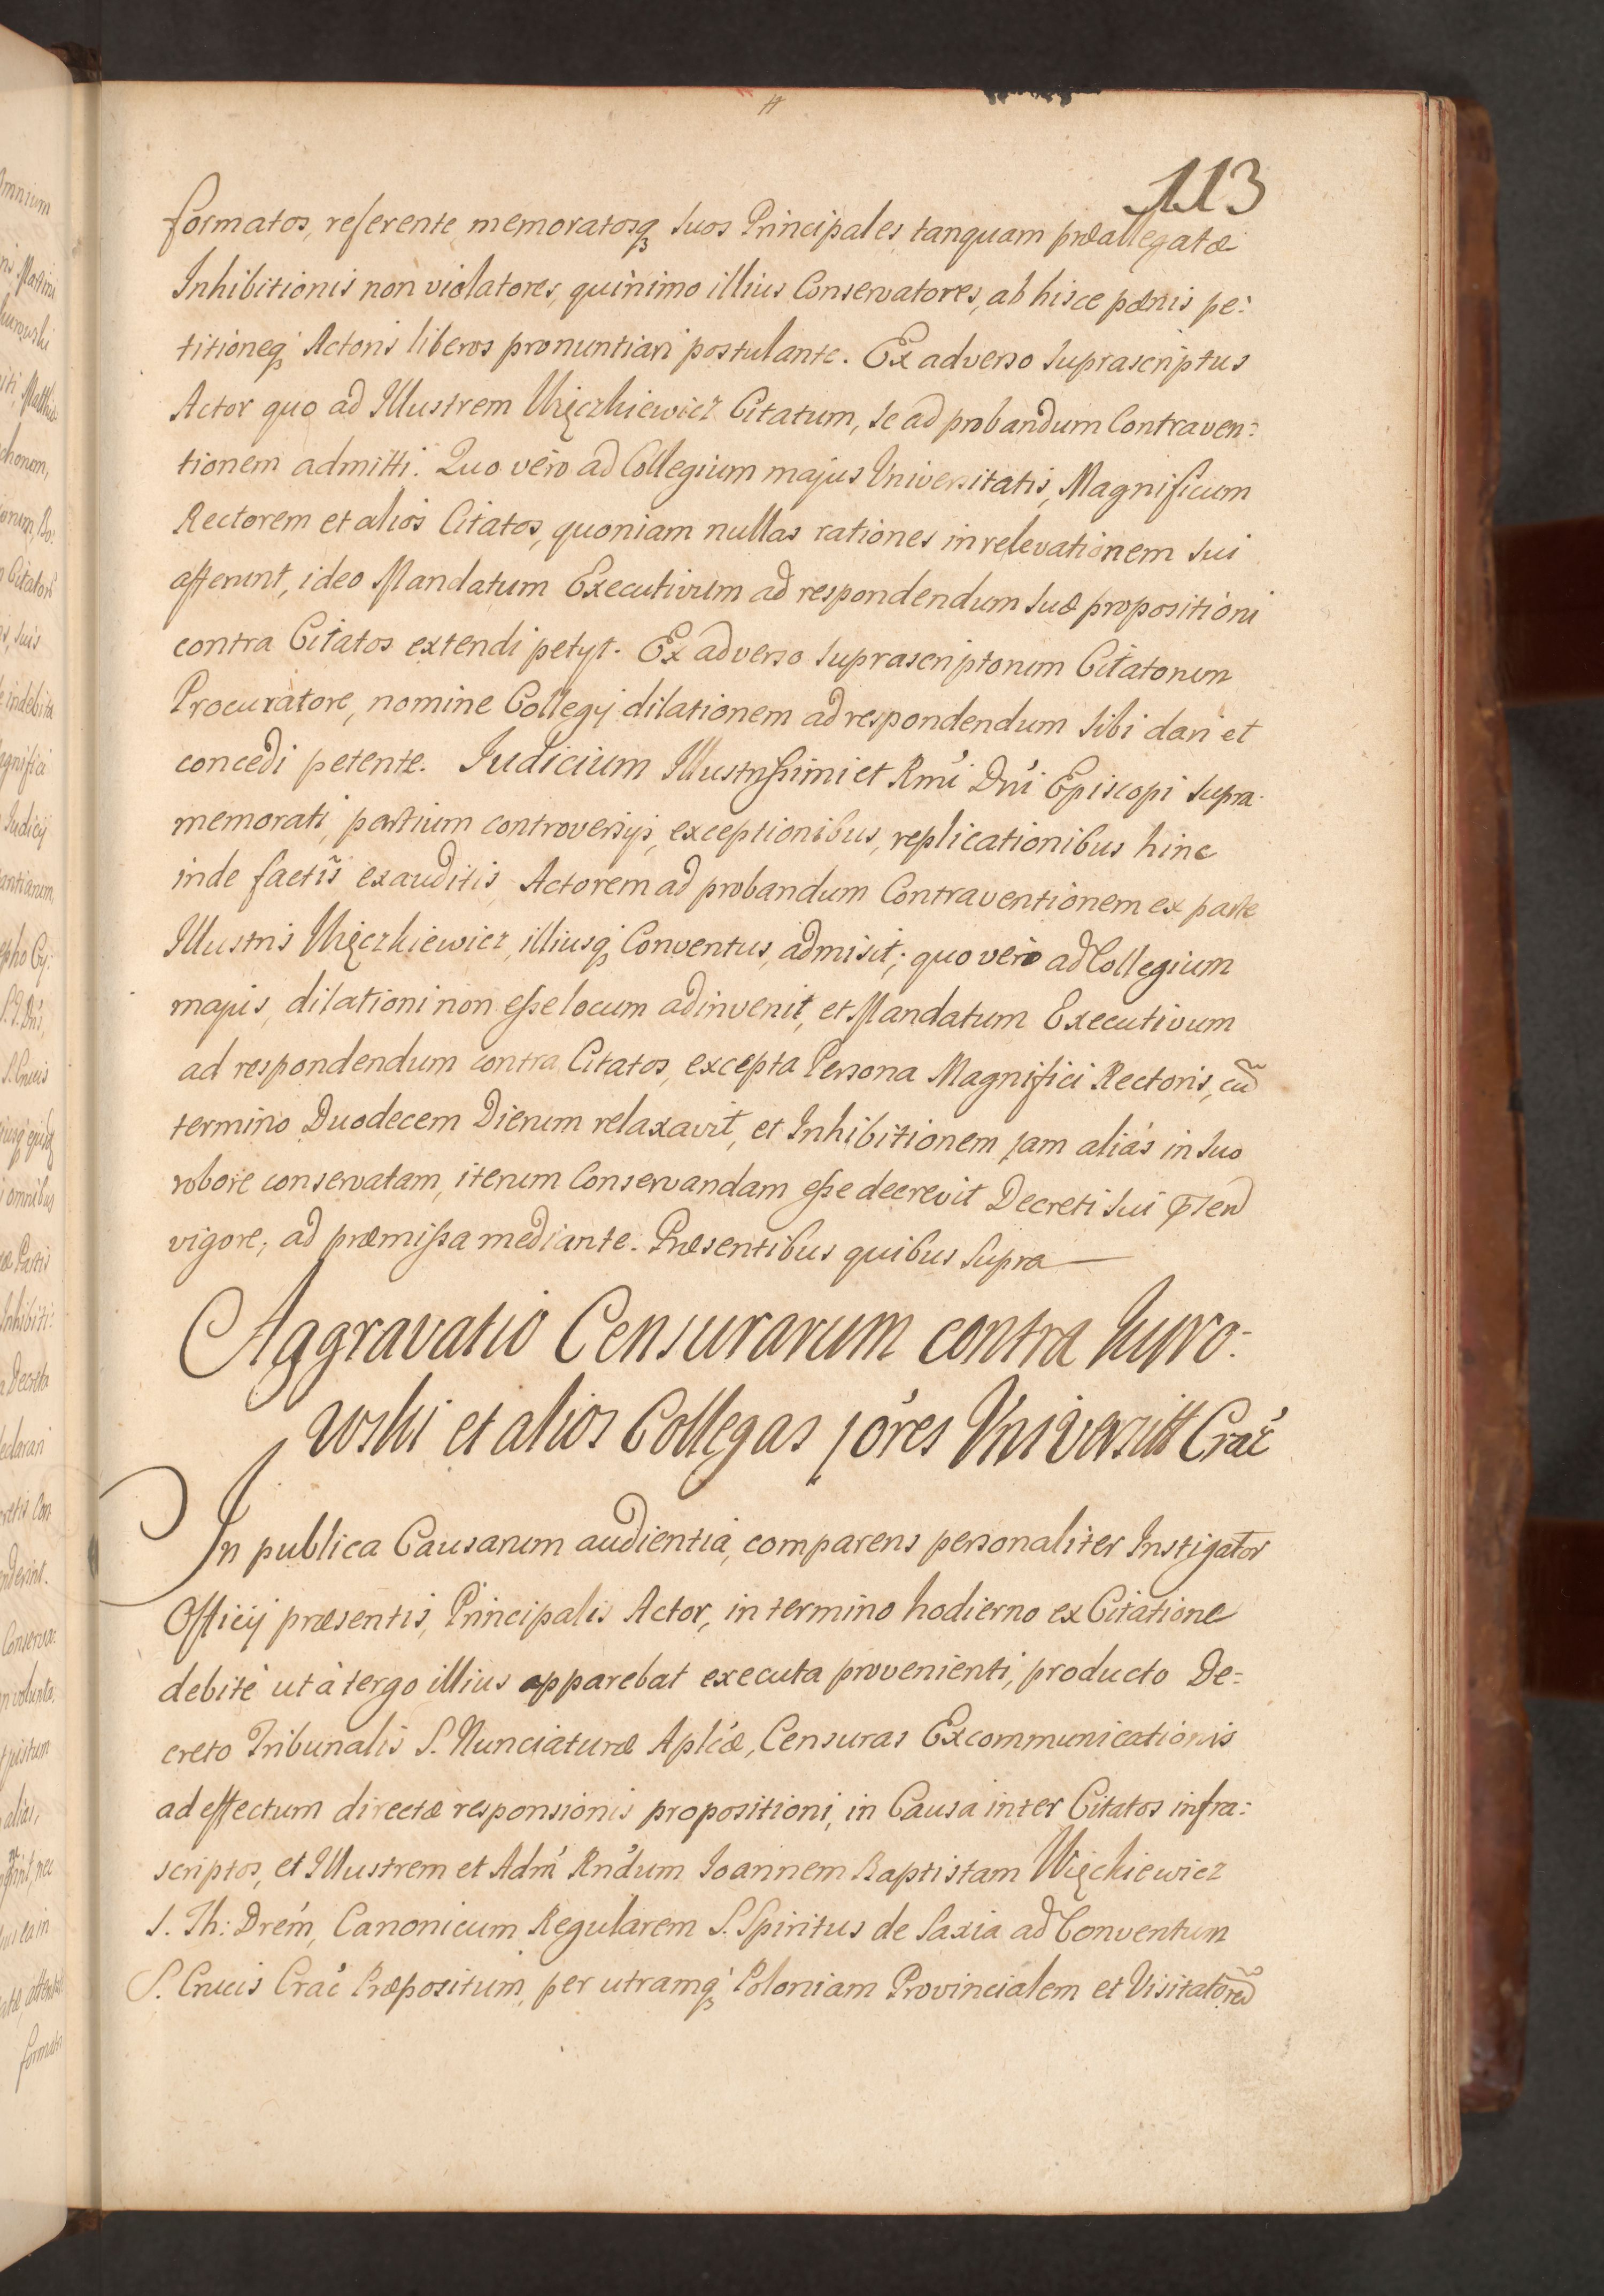 113
formatos, referente memoratosq₃ suos Principales tanquam præallegatæ
Inhibitionis non violatores, quinimo illius Conservatores, ab hisce pœnis pe:
titioneq₃ Actoris liberos pronuntiari postulante. Ex adverso suprascriptus
Actor quo ad Illustrem Więczkiewicz Citatum, se ad probandum Contraven:
tionem admitti. Quo vero ad Collegium majus Universitatis, Magnificum
Rectorem et alios Citatos, quoniam nullas rationes in relevationem sui
afferunt, ideo Mandatum Executivum ad respondendum suæ propositioni
contra Citatos extendi petyt. Ex adverso suprascriptorum Citatorum
Procuratore, nomine Collegij dilationem ad respondendum sibi dari et
concedi petente. Iudicium Illustrissimi et Rmi Dni Episcopi supra-
memorati, partium controversijs, exceptionibus, replicationibus hinc
inde factis exauditis, Actorem ad probandum Contraventionem ex parte
Illustris Więczkiewicz, illiusq₃ Conventus, admisit; quo vero ad Collegium
majus, dilationi non esse locum adinvenit, et Mandatum Executivum
ad respondendum contra Citatos, excepta Persona Magnifici Rectoris, cũ
termino Duodecem Dierum relaxavit, et Inhibitionem jam aliàs in suo
robore conservatam, iterum Conservandam esse decrevit Decreti sui
vigore, ad præmissa mediante. Præsentibus quibus supra
Aggravatio Censurarum contra Kuro:
wski et alios Collegas jóres Universitt Crać
In publica Causarum audientia, comparens personaliter Instigator
Officij præsentis, Principalis Actor, in termino hodierno ex Citatione
debitè ut à tergo illius apparebat executa provenienti, producto De=
creto Tribunalis S. Nunciaturæ Aplicæ, Censuras Excommunicationis
ad effectum directæ responsionis propositioni, in Causa inter Citatos infra:
scriptos, et Illustrem et Adm Rndum Ioannem Baptistam Więckiewicz
S. Th: Drem, Canonicum Regularem S. Spiritus de Saxia ad Conventum
S. Crucis Crać Præpositum, per utramq₃ Poloniam Provincialem et Visitatorẽ